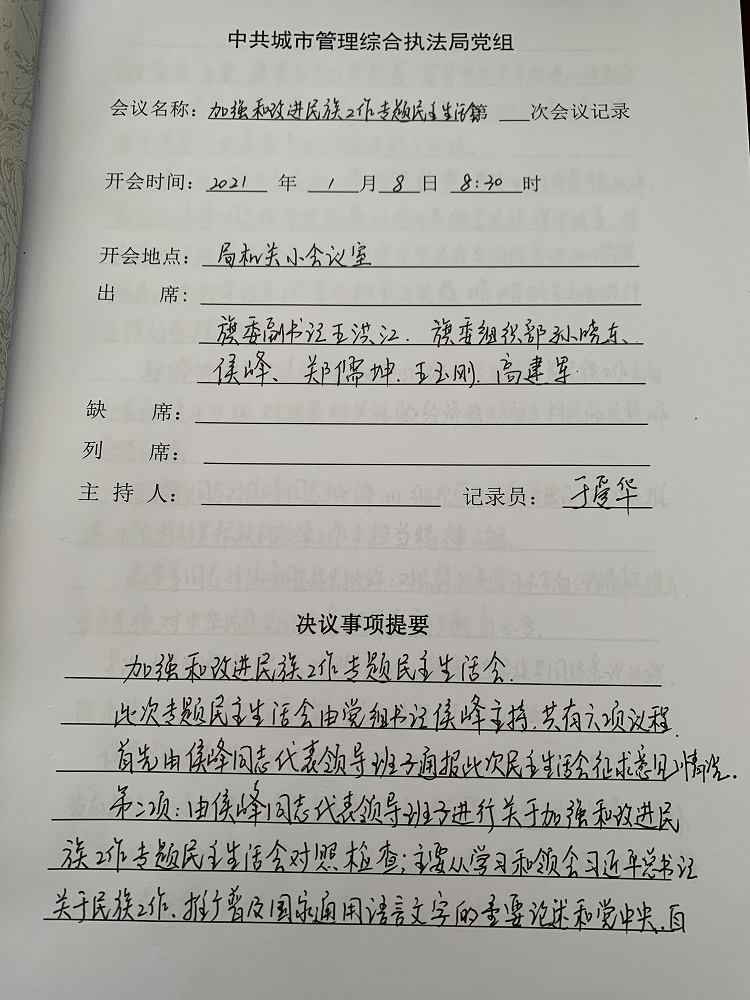 中共城市管理综合执法局党组
会议名称：加强和改进民族工作专题民主生活会第 次会议记录
开会时间：2021 年 1 月 8 日 8:30 时
开会地点：局机关小会议室
出 席：
旗委副书记王洪江、旗委组织部孙晓东、
侯峰、郑儒坤、王玉刚、高建军
缺 席：
列 席：
主 持 人： 记录员：于爱华
决议事项提要
加强和改进民族工作专题民主生活会.
此次专题民主生活会由党组书记侯峰主持，共有六项议程.
首先由侯峰同志代表领导班子通报此次民主生活会征求意见情况.
第二项：由侯峰同志代表领导班子进行关于加强和改进民
族工作专题民主生活会对照检查；主要从学习和领会习近平总书记
关于民族工作、推广普及国家通用语言文字的重要论述和党中央、自